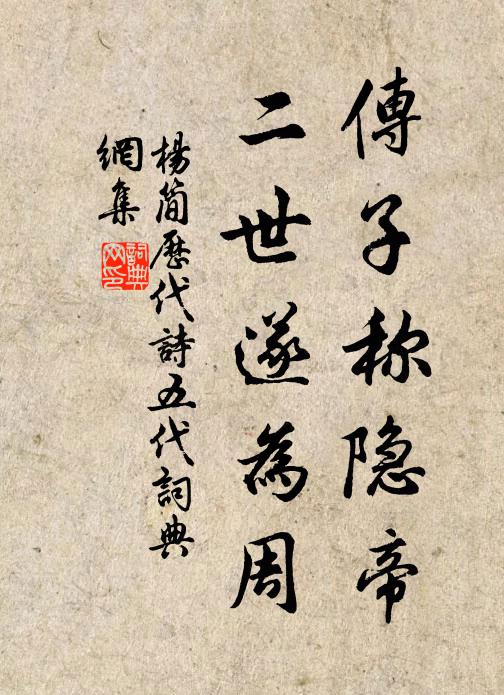 傳子称隐帝
二世遂為周
楊简歷代詩五代詞典
網集
詞典
网印